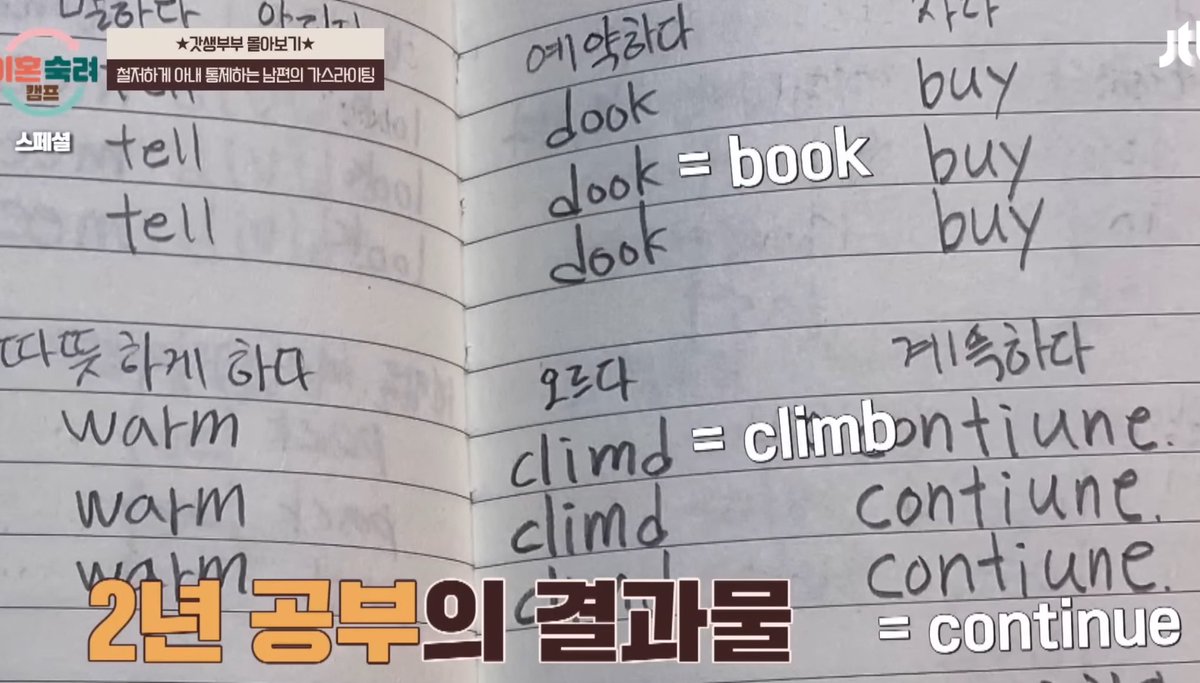 ★갓생부부 몰아보기★
철저하게 아내 통제하는 남편의 가스라이팅
이혼숙려
캠프
스페셜
예약하다
사다
tell
tell
dook
dook = book
dook
buy
buy
buy
따뜻하게 하다
오르다
계속하다
warm
warm
warm
climd = climb
climd
contiune.
contiune.
= continue
2년 공부의 결과물